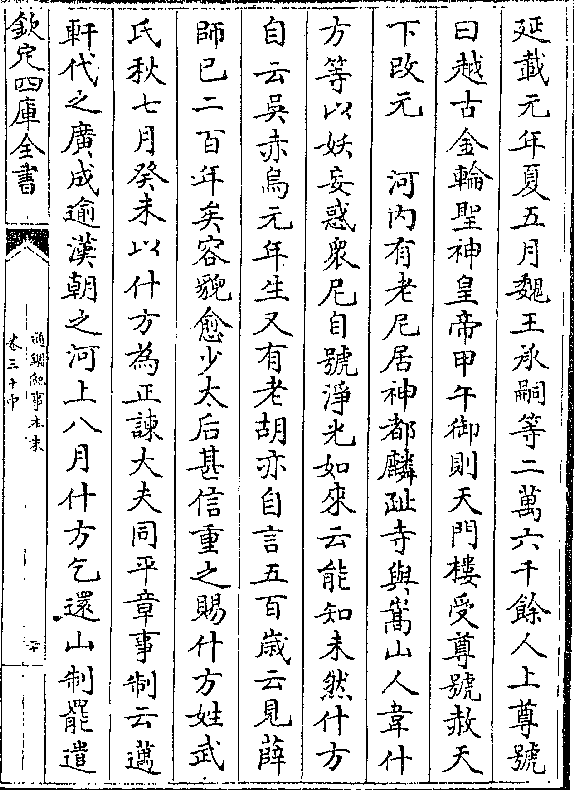 延載元年夏五月魏王承嗣等二萬六千餘人上尊號
曰越古金輪聖神皇帝甲午御則天門樓受尊號赦天
下改元　河内有老尼居神都麟趾寺與嵩山人韋什
方等以妖妄惑衆尼自號淨光如來云能知未然什方
自云吳赤烏元年生又有老胡亦自言五百歲云見薛
師已二百年矣容貌愈少太后甚信重之賜什方姓武
氏秋七月癸未以什方為正諫大夫同平章事制云邁
軒代之廣成逾漢朝之河上八月什方乞還山制罷遣
欽定四庫全書
通鑑紀事本末
卷三十中